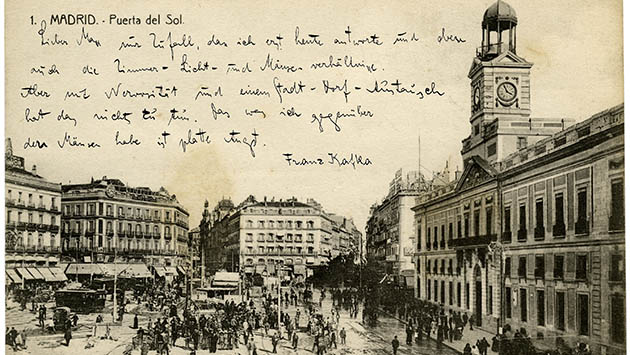 1. MADRID. - Puerta del Sol.
Lieber Max nur Zufall, das ich erst heute antworte und eben
auch die Zimmer-Licht- und Mäuse-verhältnisse.
Aber mit Nervosität und einem Stadt-Dorf-Austausch
hat das nicht zu tun. Das was ich gegenüber
den Mäusen habe ist platte Angst.
Franz Kafka